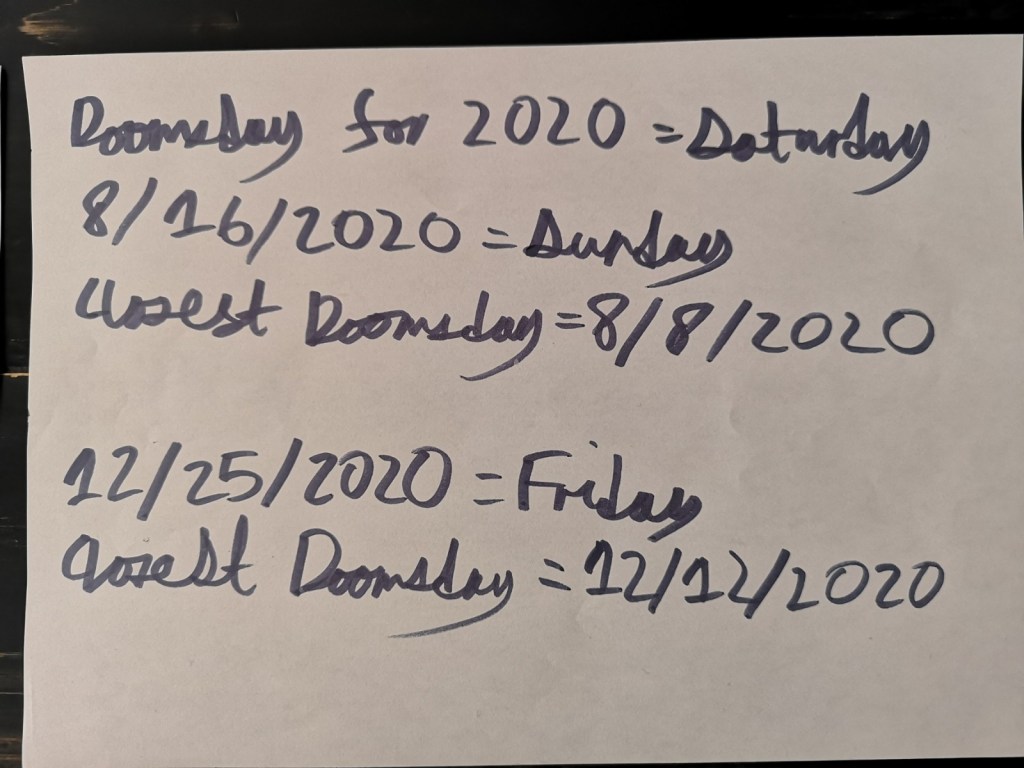 Doomsday for 2020 = Saturday
8/16/2020 = Sunday
Closest Doomsday = 8/8/2020
12/25/2020 = Friday
Closest Doomsday = 12/12/2020